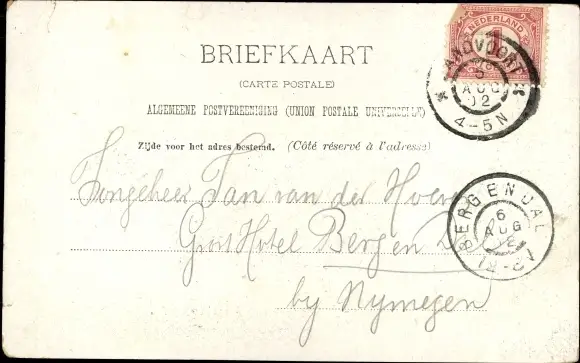 NEDERLAND
1
BRIEFKAART
(CARTE POSTALE)
ALGEMEENE POSTVEREENIGING (UNION POSTALE UNIVERSELLE)
Zijde voor het adres bestemd. (Côté réservé à l'adresse)
ZANDVOORT
5
AUG
02
4-5N
Jongeheer Jan van der Hoeven
Groot Hotel Berg en D
by Nymegen
BERG EN DAL
6
AUG
02